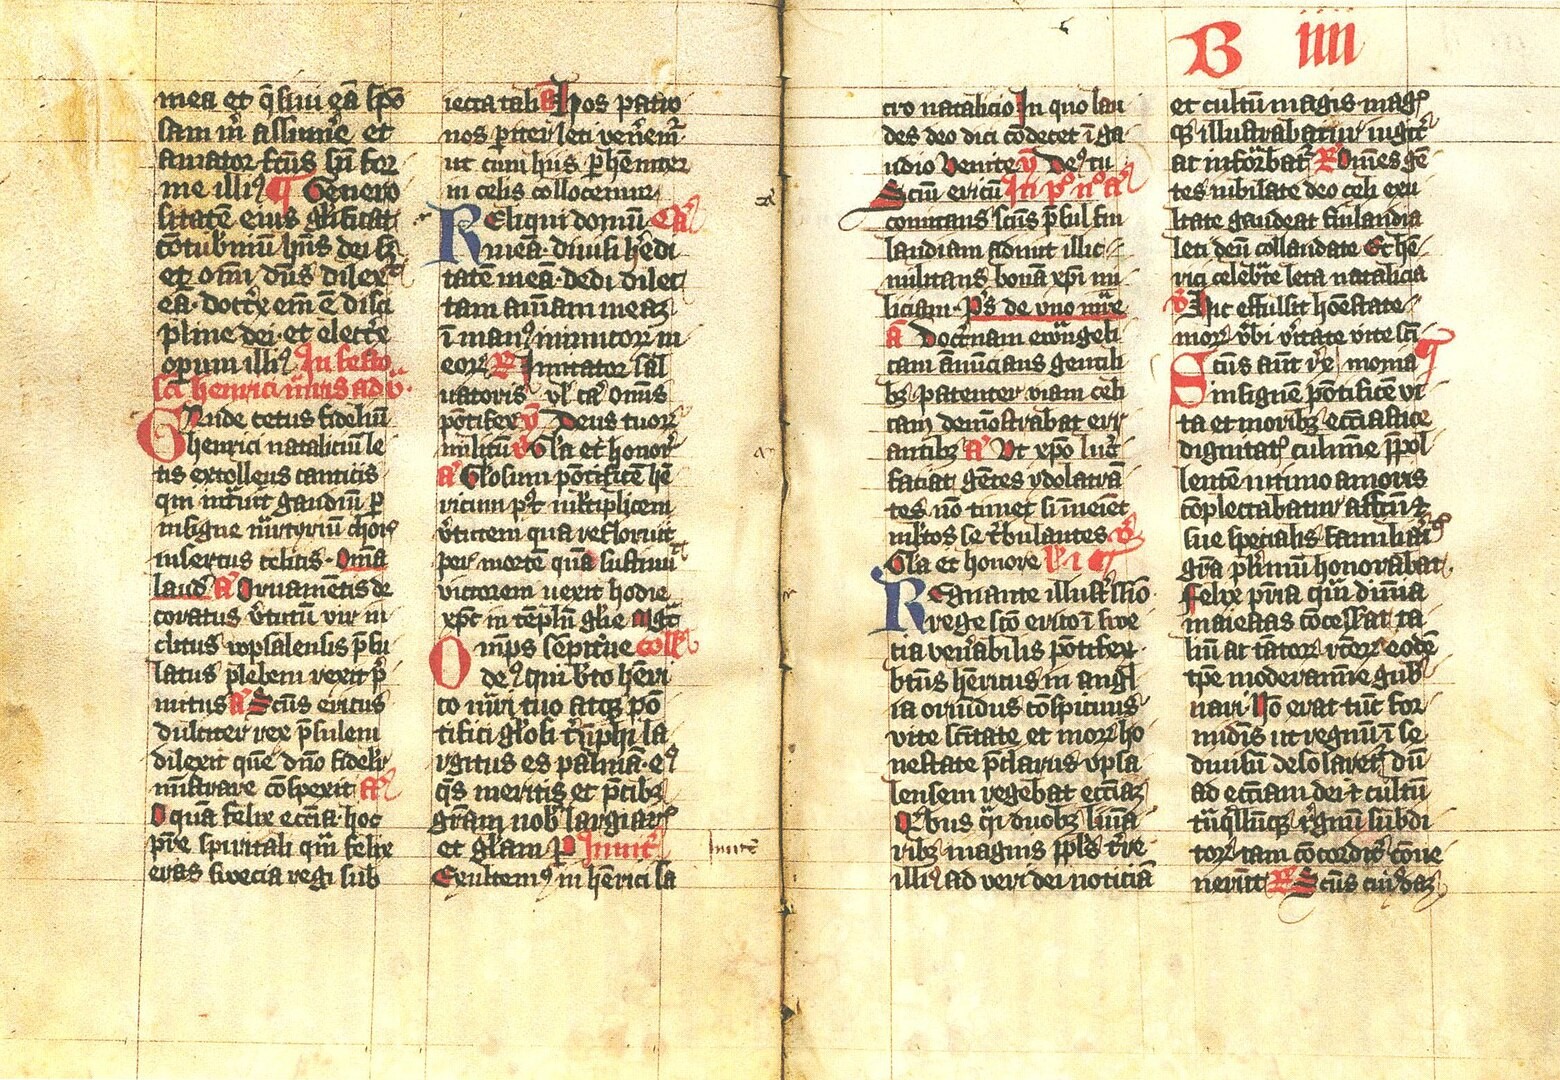 mea et q̄siui eā spō
sam m̄ assume et
amator fc̄us
me illiꝰ Genero
sitatē eius gl̄ificat
cōtub̄niū hn̄s dei sꝫ
et om̄i dn̄s dilex̄
ea doctͥx em̄ ē disci
pline dei et electͥx
opum illiꝰ In festo
sc̄i henrici
Gaude cetus fideliū
henrici nataliciū le
tis extollens canticis
qui gaudiū p̄
insigne mr̄tyriū choris
insertus celicis Om̄ia
laud̄ A Ornamentis de
coratus v̄tutū vir in
clitus vpsalensis p̄su
latus plebem rexit p̄
mitus A Sc̄us ericus
dulciter rex p̄sulem
dilexit quē dn̄o fideliͬ
mīstrare cōspexit A
O quā felix ecc̄ia hoc
pr̄e spiritali quā felix
eras swecia regi sub
iecta tali A Hos patro
nos pͥter leti ven̄emͬ
ut cum hiis ꝑhēniter
in celis collocemur
Reliqui domū Cā
meā diuisi h̄edi
tatē meā dedi dilec
tam aīam meaꝫ
ī manꝰ inimicorꝝ in
eorꝝ R Imitator sal
uatoris vl̄ cā om̄is
pōtifex V Deus tuorꝝ
militū V Gl̄a et honorͤ
A Gl̄osum pōtificē hē
ricum pꝰt mͣltiplicem
v̄tutem qua refloruit
per mortē quā sustinuit
victorem uexit hodie
xp̄c in tēplū gl̄ie Mḡt
Om̄ps sempit̄ne coll̄
deꝰ qui bt̄o henri
co mr̄i tuo atqꝫ pō
tifici gl̄osi tͥūphi la
rgitus es palmā eꝰ
qͣs meritis et p̄cibꝫ
grām nob̄ largiarͥs
et gl̄am P Inuit̄
Exultemꝰ in hērici sa
Inuit̄
B iiii
cro natalicio In quo lau
des deo dici cōdecet ī ga
udio Venite V Deꝰ tu
Sc̄m ericū In pͦ nͦ A
comitans sc̄us p̄sul fin
laudiam adiuit illic
militans bonā xp̄i mi
liciam Pͨs de vno mr̄e
A Doctͥnam ewͣngeli
cam ānūcians gentili
bꝫ patenter viam celi
cam demōstrabat err
antibꝫ A Ut xp̄o lucͬ
faciat gētes ydolatrā
tes nō timet
mītos se tͥbulantes V
Gl̄a et honore L͞c i
Regnante illustͥssīo
rege sc̄o erico ī swe
cia ven̄abilis pōtifex
bt̄us hēricus in angl
ia oriūdus cōspicuus
vite sc̄itate et morꝝ ho
nestate p̄clarus vpsa
lensem regebat ecc̄iaꝫ
Qͥbus quͣ duobꝫ lumīa
ribꝫ magnis ppl̄s tr̄e
illiꝰ ad veri dei noticiā
et cultū magis magͤ
qꝫ illustrabatur iugitͬ
at infōrbatͬ R Om̄es gē
tes iubilate deo celi exu
ltate gaudeat finlandia
leti deū collaudate Et hē
rici celebr̄te leta natalicia
V Hic effulsit hōestate
morꝝ v̄bi v̄itate vite sc̄i
monia
Sc̄us aūt rex
insignē pōtificē vi
ta et moribꝫ ecc̄iastice
dignitatͥs culmīe p̄pol
lentē intimo amoris
cōplectabatur affctū ⁊
sue specialis familiaritͥs
grā plͥmū honorabat
Felix pͣria quā diuīa
maiestas cōcesserat ta
liū ac tātorꝝ rc̄orꝝ eodē
tp̄e moderamīe gub
nari Nō erat tūc for
midīs ut regnū ī se
diuisū desolaretͬ dū
ad ecc̄iam dei ⁊ cultū
rͥgnū subdi
torꝝ tam cōcorditͬ cōue
nerūt R Sc̄us cuidaꝫ